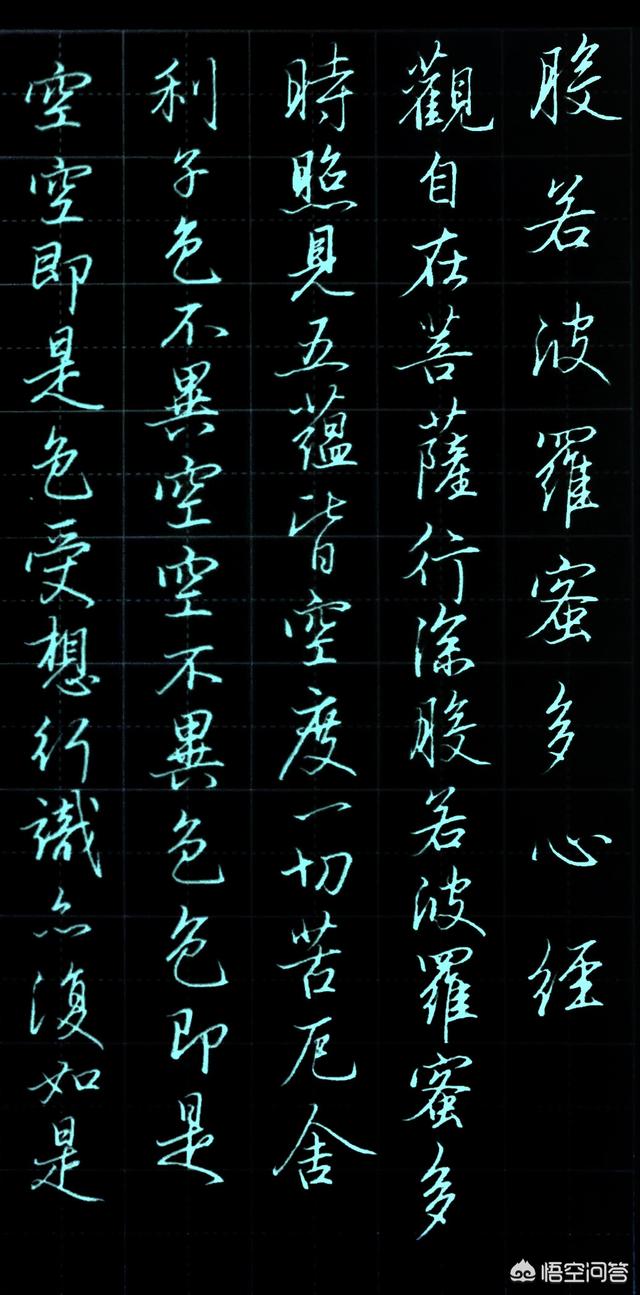 般若波羅蜜多心經
觀自在菩薩行深般若波羅蜜多
時照見五蘊皆空度一切苦厄舍
利子色不異空空不異色色即是
空空即是色受想行識亦復如是
悟空问答